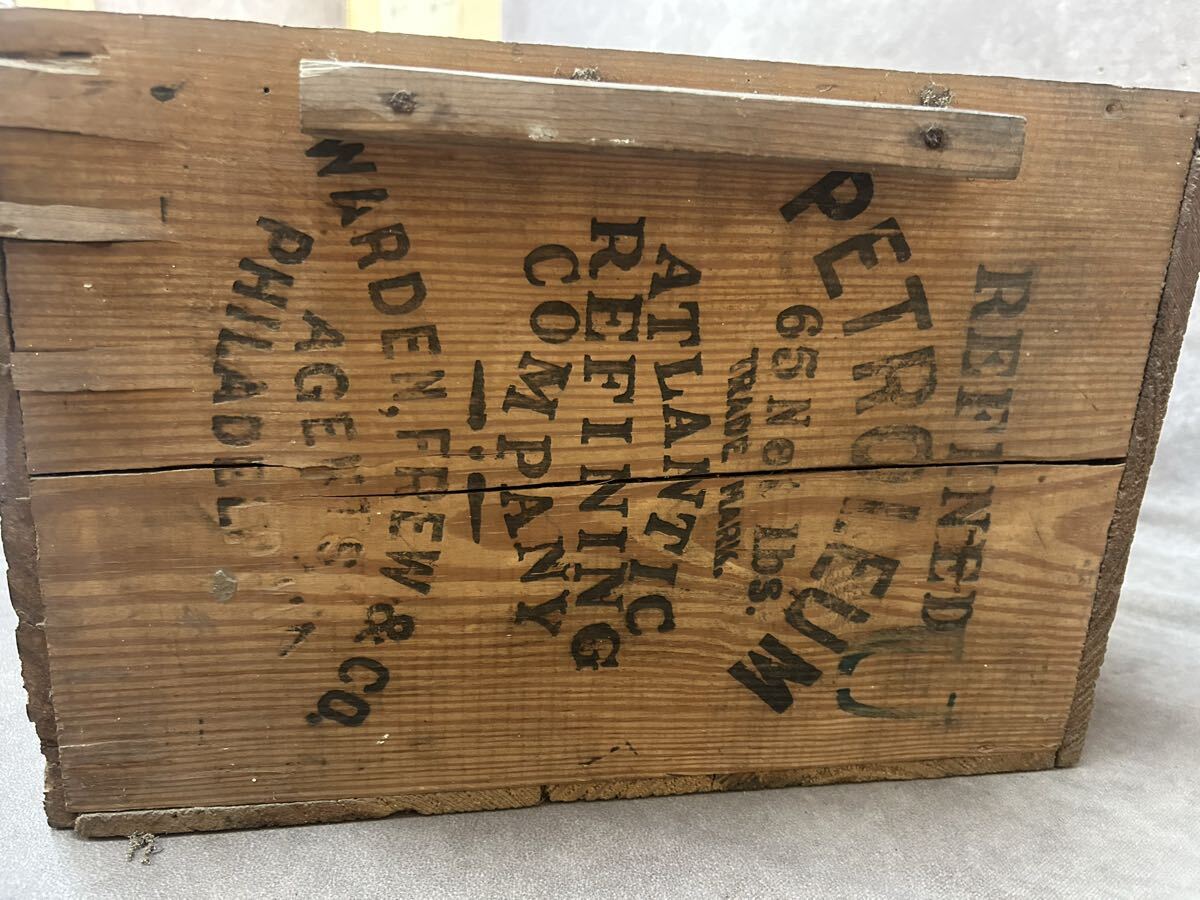 REFINED
PETROLEUM
65 Net lbs.
TRADE MARK.
ATLANTIC
REFINING
COMPANY
WARDEN, FREW & CO.
AGENTS